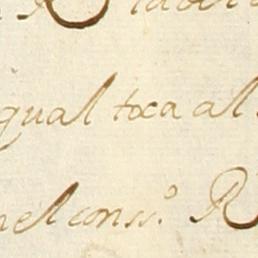 qual toca al
nel conss.º R